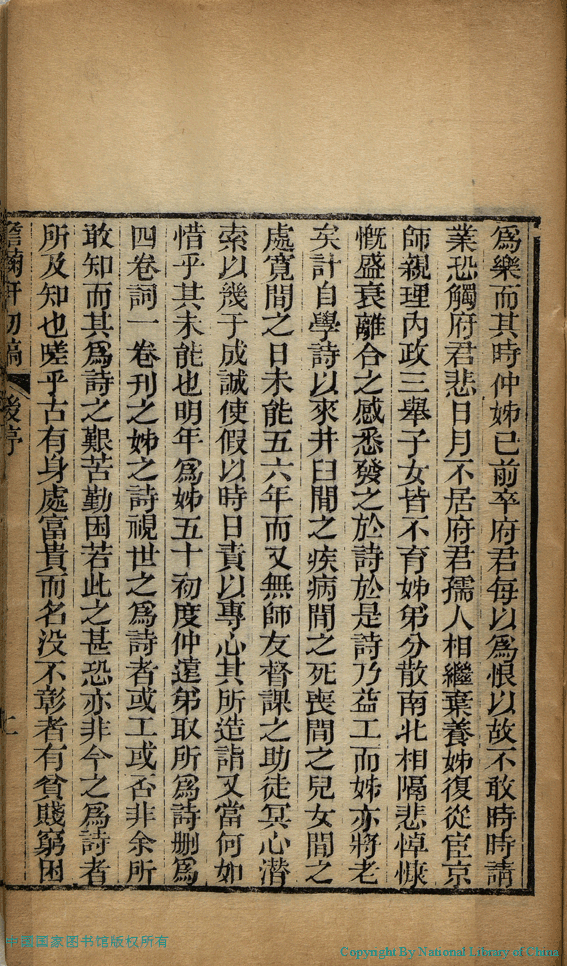 爲樂而其時仲姊已前卒府君每以爲恨以故不敢時時請
業恐觸府君悲日月不居府君孺人相繼棄養姊復從宦京
師親理内政三舉子女皆不育姊弟分散南北相隔悲悼慷
慨盛衰離合之感悉發之於詩於是詩乃益工而姊亦將老
矣計自學詩以來井臼間之疾病間之死喪間之兒女間之
處寬閒之日未能五六年而又無師友督課之助徒冥心潛
索以幾于成誠使假以時日責以專心其所造詣又當何如
惜乎其未能也明年爲姊五十初度仲遠弟取所爲詩删爲
四卷詞一卷刊之姊之詩視世之爲詩者或工或否非余所
敢知而其爲詩之艱苦勤困若此之甚恐亦非今之爲詩者
所及知也嗟乎古有身處富貴而名没不彰者有貧賤窮困
軒初稿 後序
中国国家图书馆版权所有
Copyright By National Library of China